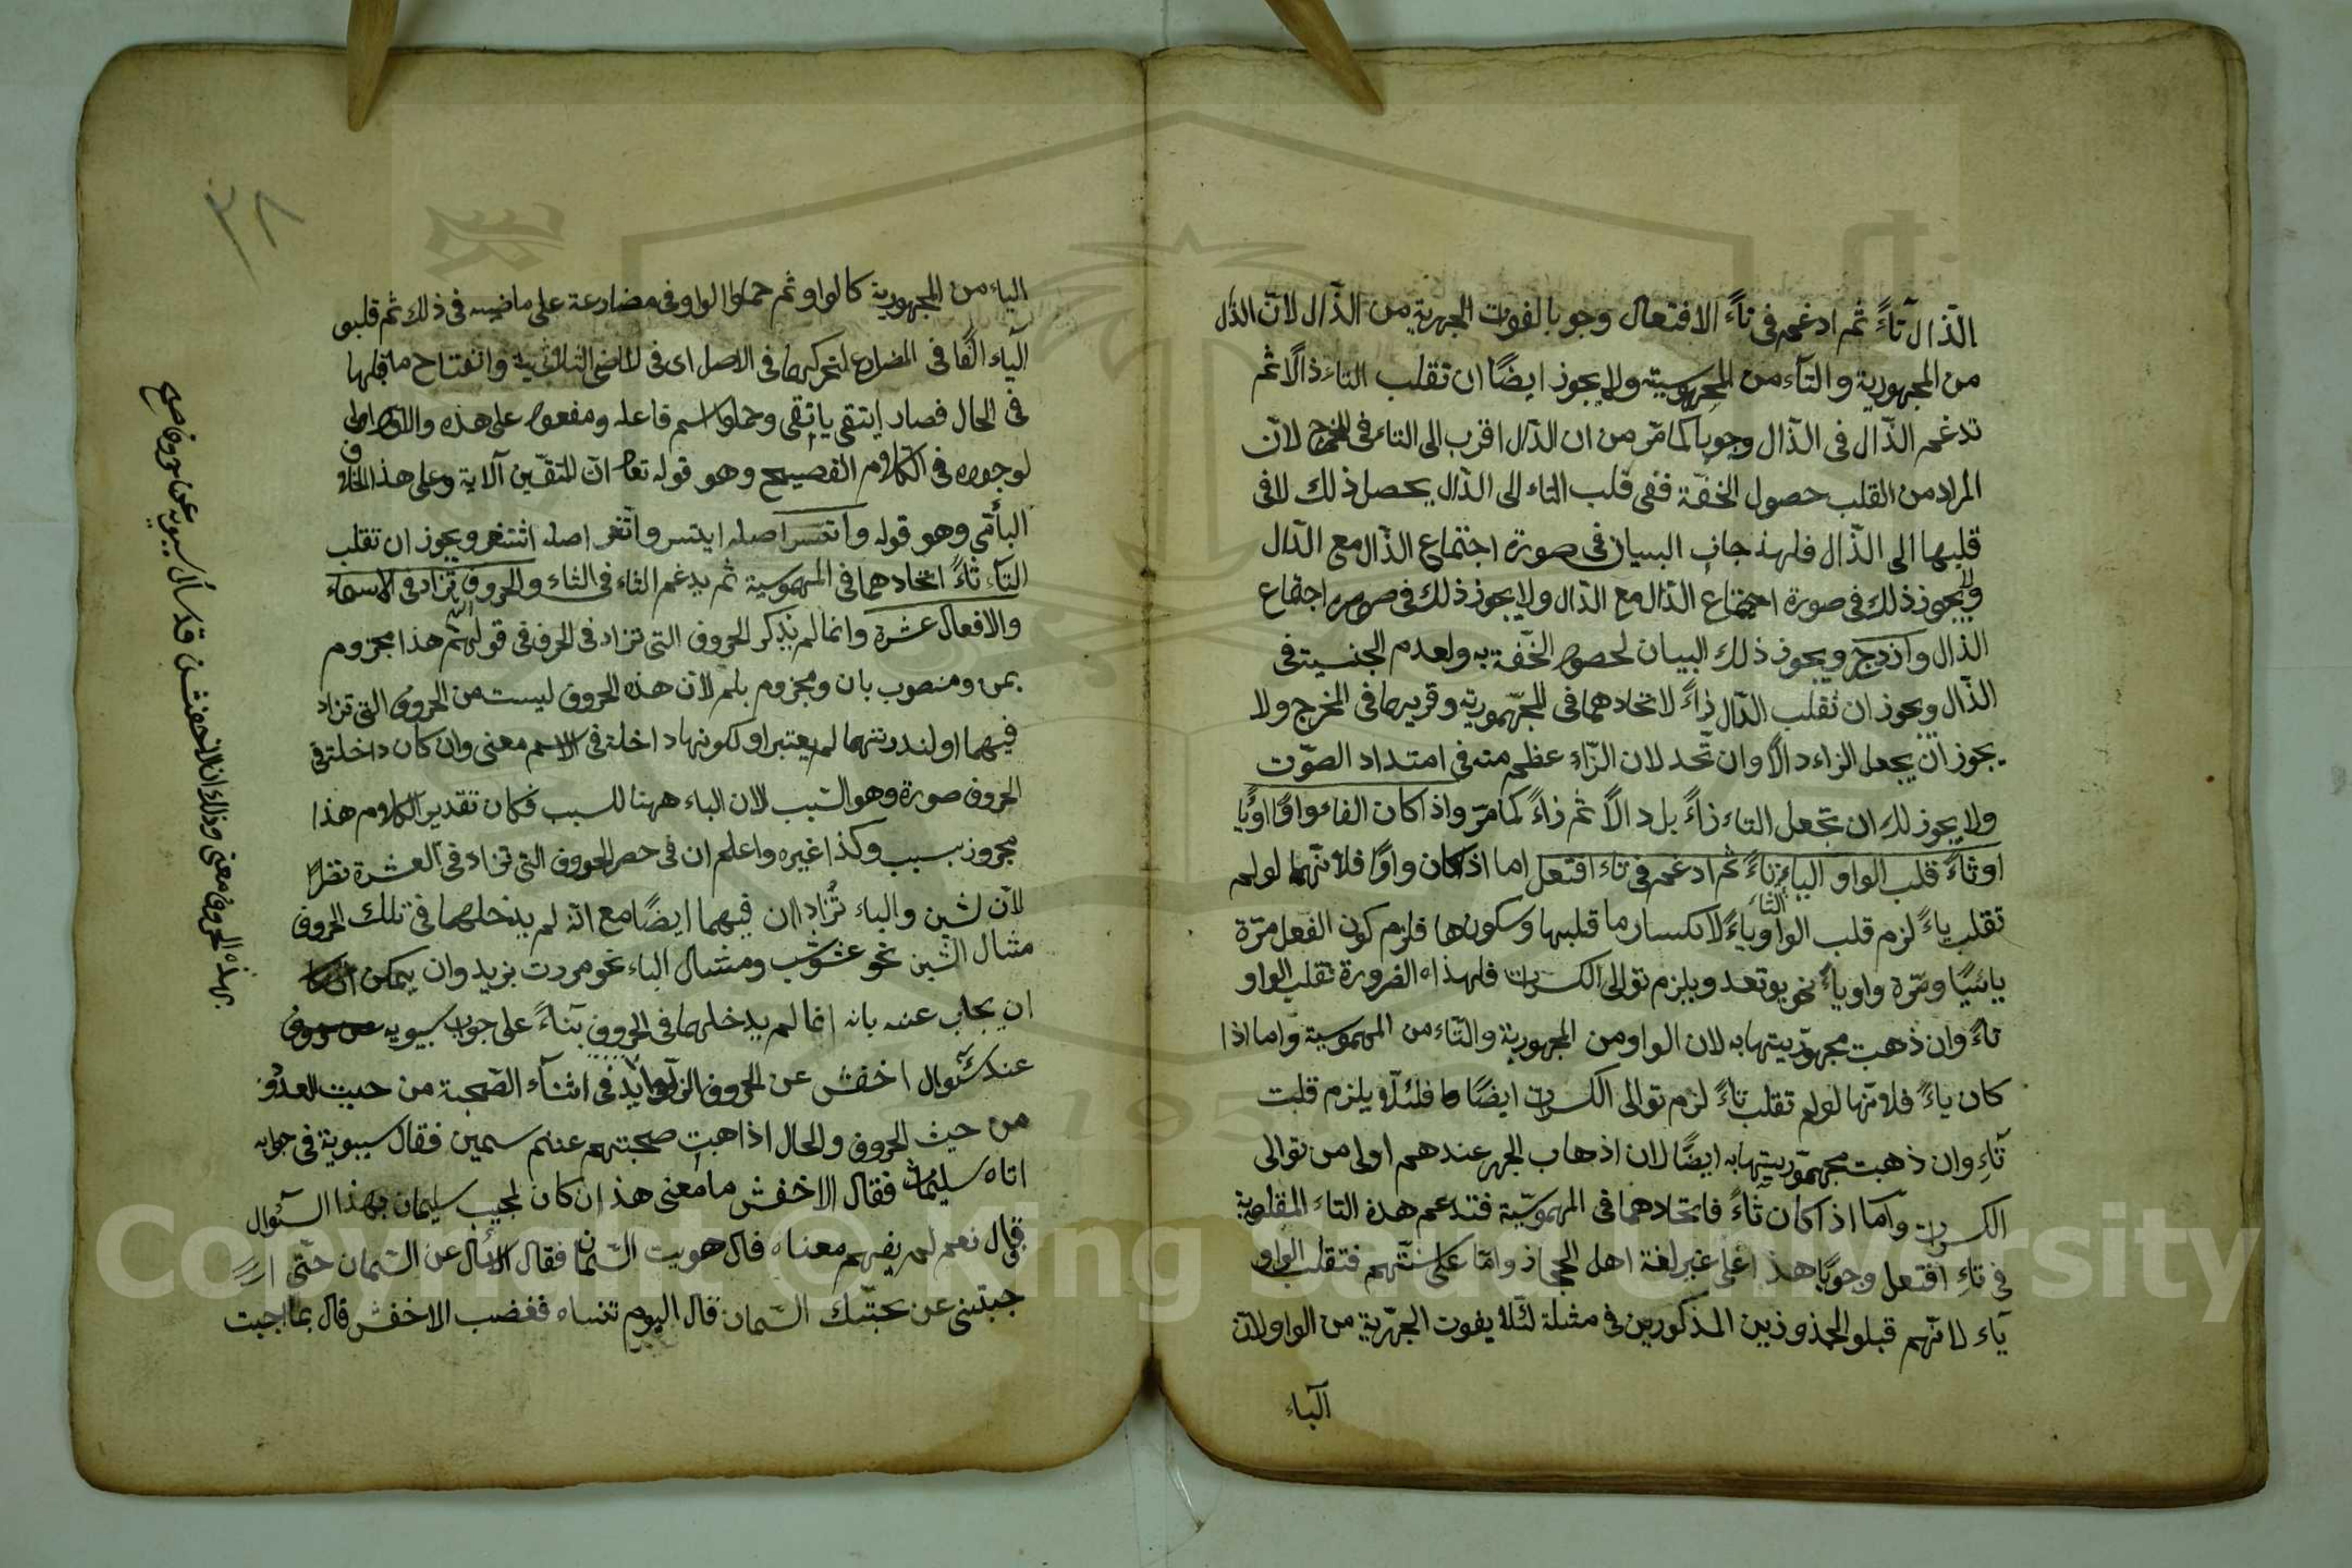 الذال تاءً ثم ادغم فى تاءً الافتعال وجوبا لفوت المجهرية من الذال لان الذال
من المجهورية والتاء من المهموسية ولا يجوز ايضًا ان تقلب التاء ذالًا ثم
تدغم الذال فى الذال وجوبا كما مر من ان الذال اقرب الى التاء فى المخرج لان
المراد من القلب حصول الخفة ففى قلب التاء الى الدال يحصل ذلك لا فى
قلبها الى الذال فلهذ جاز البيان فى صورة اجتماع الذال مع الدال
ويجوز ذلك فى صورة اجتماع الذال مع الدال ولا يجوز ذلك فى صورة اجتماع
الذال وازدجر ويجوز ذلك البيان لحصول الخفة به ولعدم الجنسية فى
الذال ويجوز ان تقلب الدال زاءً لاتحادهما فى المجهورية وقربهما فى المخرج ولا
يجوز ان يجعل الزاء دالًا وان تحد لان الزاء عظم منه فى امتداد الصوت
ولا يجوز لك ان تجعل التاء زاءً بل دالًا ثم زاءً كما مر واذا كان الفاء واوًا او يًا
او ثاءً قلب الواو الياء تاءً ثم ادغم فى تاء افتعل اما اذ كان واوًا فلانها لو لم
تقلب ياءً لزم قلب الواو ياءً لانكسار ما قلبها وسكونها فلزم كون الفعل مرة
يائيًا ومرة واويا نحو يوتعد ويلزم توالى الكسرات فلهذه الضرورة تقلب الواو
تاءً وان ذهبت مجهوريتها به لان الواو من المجهورية والتاء من المهموسية واما اذا
كان ياءً فلانها لو لم تقلب تاءً لزم توالى الكسرات ايضًا فلئلا يلزم قلبت
تاءِ وان ذهبت مجهوريتها به ايضًا لان اذهاب الجهر عندهم اولى من توالى
الكسرات واما اذا كان ثاءً فاتحادهما فى المهموسية فتدغم هذه التاء المقلوبة
فى تاءِ افتعل وجوبًا هذا على غير لغة اهل الحجاز واما على سنتهم فتقلب الواو
ياء لانهم قبلو المحذوذين المذكورين فى مثله لئلا يفوت الجهرية من الواو لان
الباء
٣٨
الياء من المجهورية كالواو ثم حملوا الواو فى مضارعة على ماضيه فى ذلك ثم قلبو
الياء الفًا فى المضارع لتحركها فى الاصل اى فى الماضى الثلاثية وانفتاح ما قبلها
فى الحال فصار ايتقى ياتقى وحملوا اسم فاعله ومفعوله على هذه والاول اولى
لوجوده فى الكلام الفصيح وهو قوله تعالى ان المتقين آلاية وعلى هذا الخلاف
الباقى وهو قوله واتسر اصله ايتسر واتغر اصله اثتغر ويجوز ان تقلب
التاء ثاءً اتحادهما فى المهموسية ثم يدغم الثاء فى الثاء والحروف تزاد فى الاسماء
والافعال عشرة وانما لم يذكر الحروف التى تزاد فى الحرف فى قولهم هذا مجزوم
بمن ومنصوب بان ومجزوم بلم لان هذه الحروف ليست من الحروف التى تزاد
فيهما او لندرتهما لم يعتبر او لكونها داخلة فى الاسم معنى وان كان داخلة فى
الحروف صورة وهو السبب لان الباء ههنا للسبب فكان تقدير الكلام هذا
مجرور بسبب وكذا غيره واعلم ان فى حصر الحروف التى تزاد فى العشرة نظرًا
لان لشين والباء تُزادان فيهما ايضًا مع انه لم يدخلهما فى تلك الحروف
مثال الشين نحو عشوشب ومثال الباء نحو مررت بزيد وان يمكن
ان يجاب عنه بانه انما لم يدخلهما فى الحروف بناءً على جواب سيبويه
عند سئوال اخفش عن الحروف الزوايد فى اثناء الصحبة من حيث العدد
من حيث الحروف والحال اذاهبت صحبتهم عنهم سمين فقال سيبوية فى جوابه
اتاه سليمان فقال الاخفش ما معنى هذ ان كان لمجيب سليمان بهذا السئوال
قال نعم لم يفهم معناه قال هويت السمان فقال اسأل عن السمان حتى
جبتنى عن محبتك السمان قال اليوم تنساه فغضب الاخفش قال بما اجبت
بهذه الحروف معنى وذلك ان الاخفش قد سأل سيبويه عن حروف